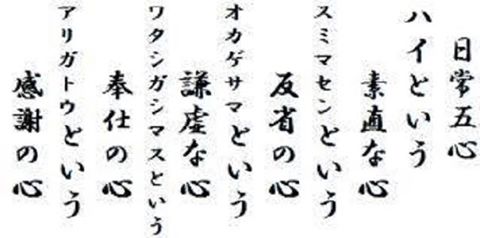 日常五心
ハイという
素直な心
スミマセンという
反省の心
オカゲサマという
謙虚な心
ワタシガシマスという
奉仕の心
アリガトウという
感謝の心